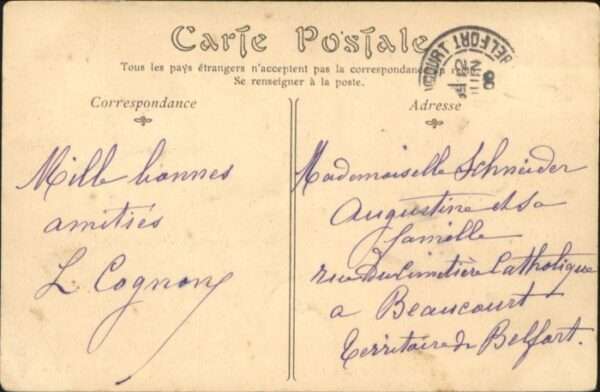 Carte Postale
Tous les pays étrangers n'acceptent pas la correspondance
Se renseigner à la poste.
Correspondance
Adresse
BELFORT
Mille bonnes
amitiés
L. Cognon
Mademoiselle Schneider
Augustine et sa
famille
rue du Cimetière Catholique
a Beaucourt
Territoire de Belfort.